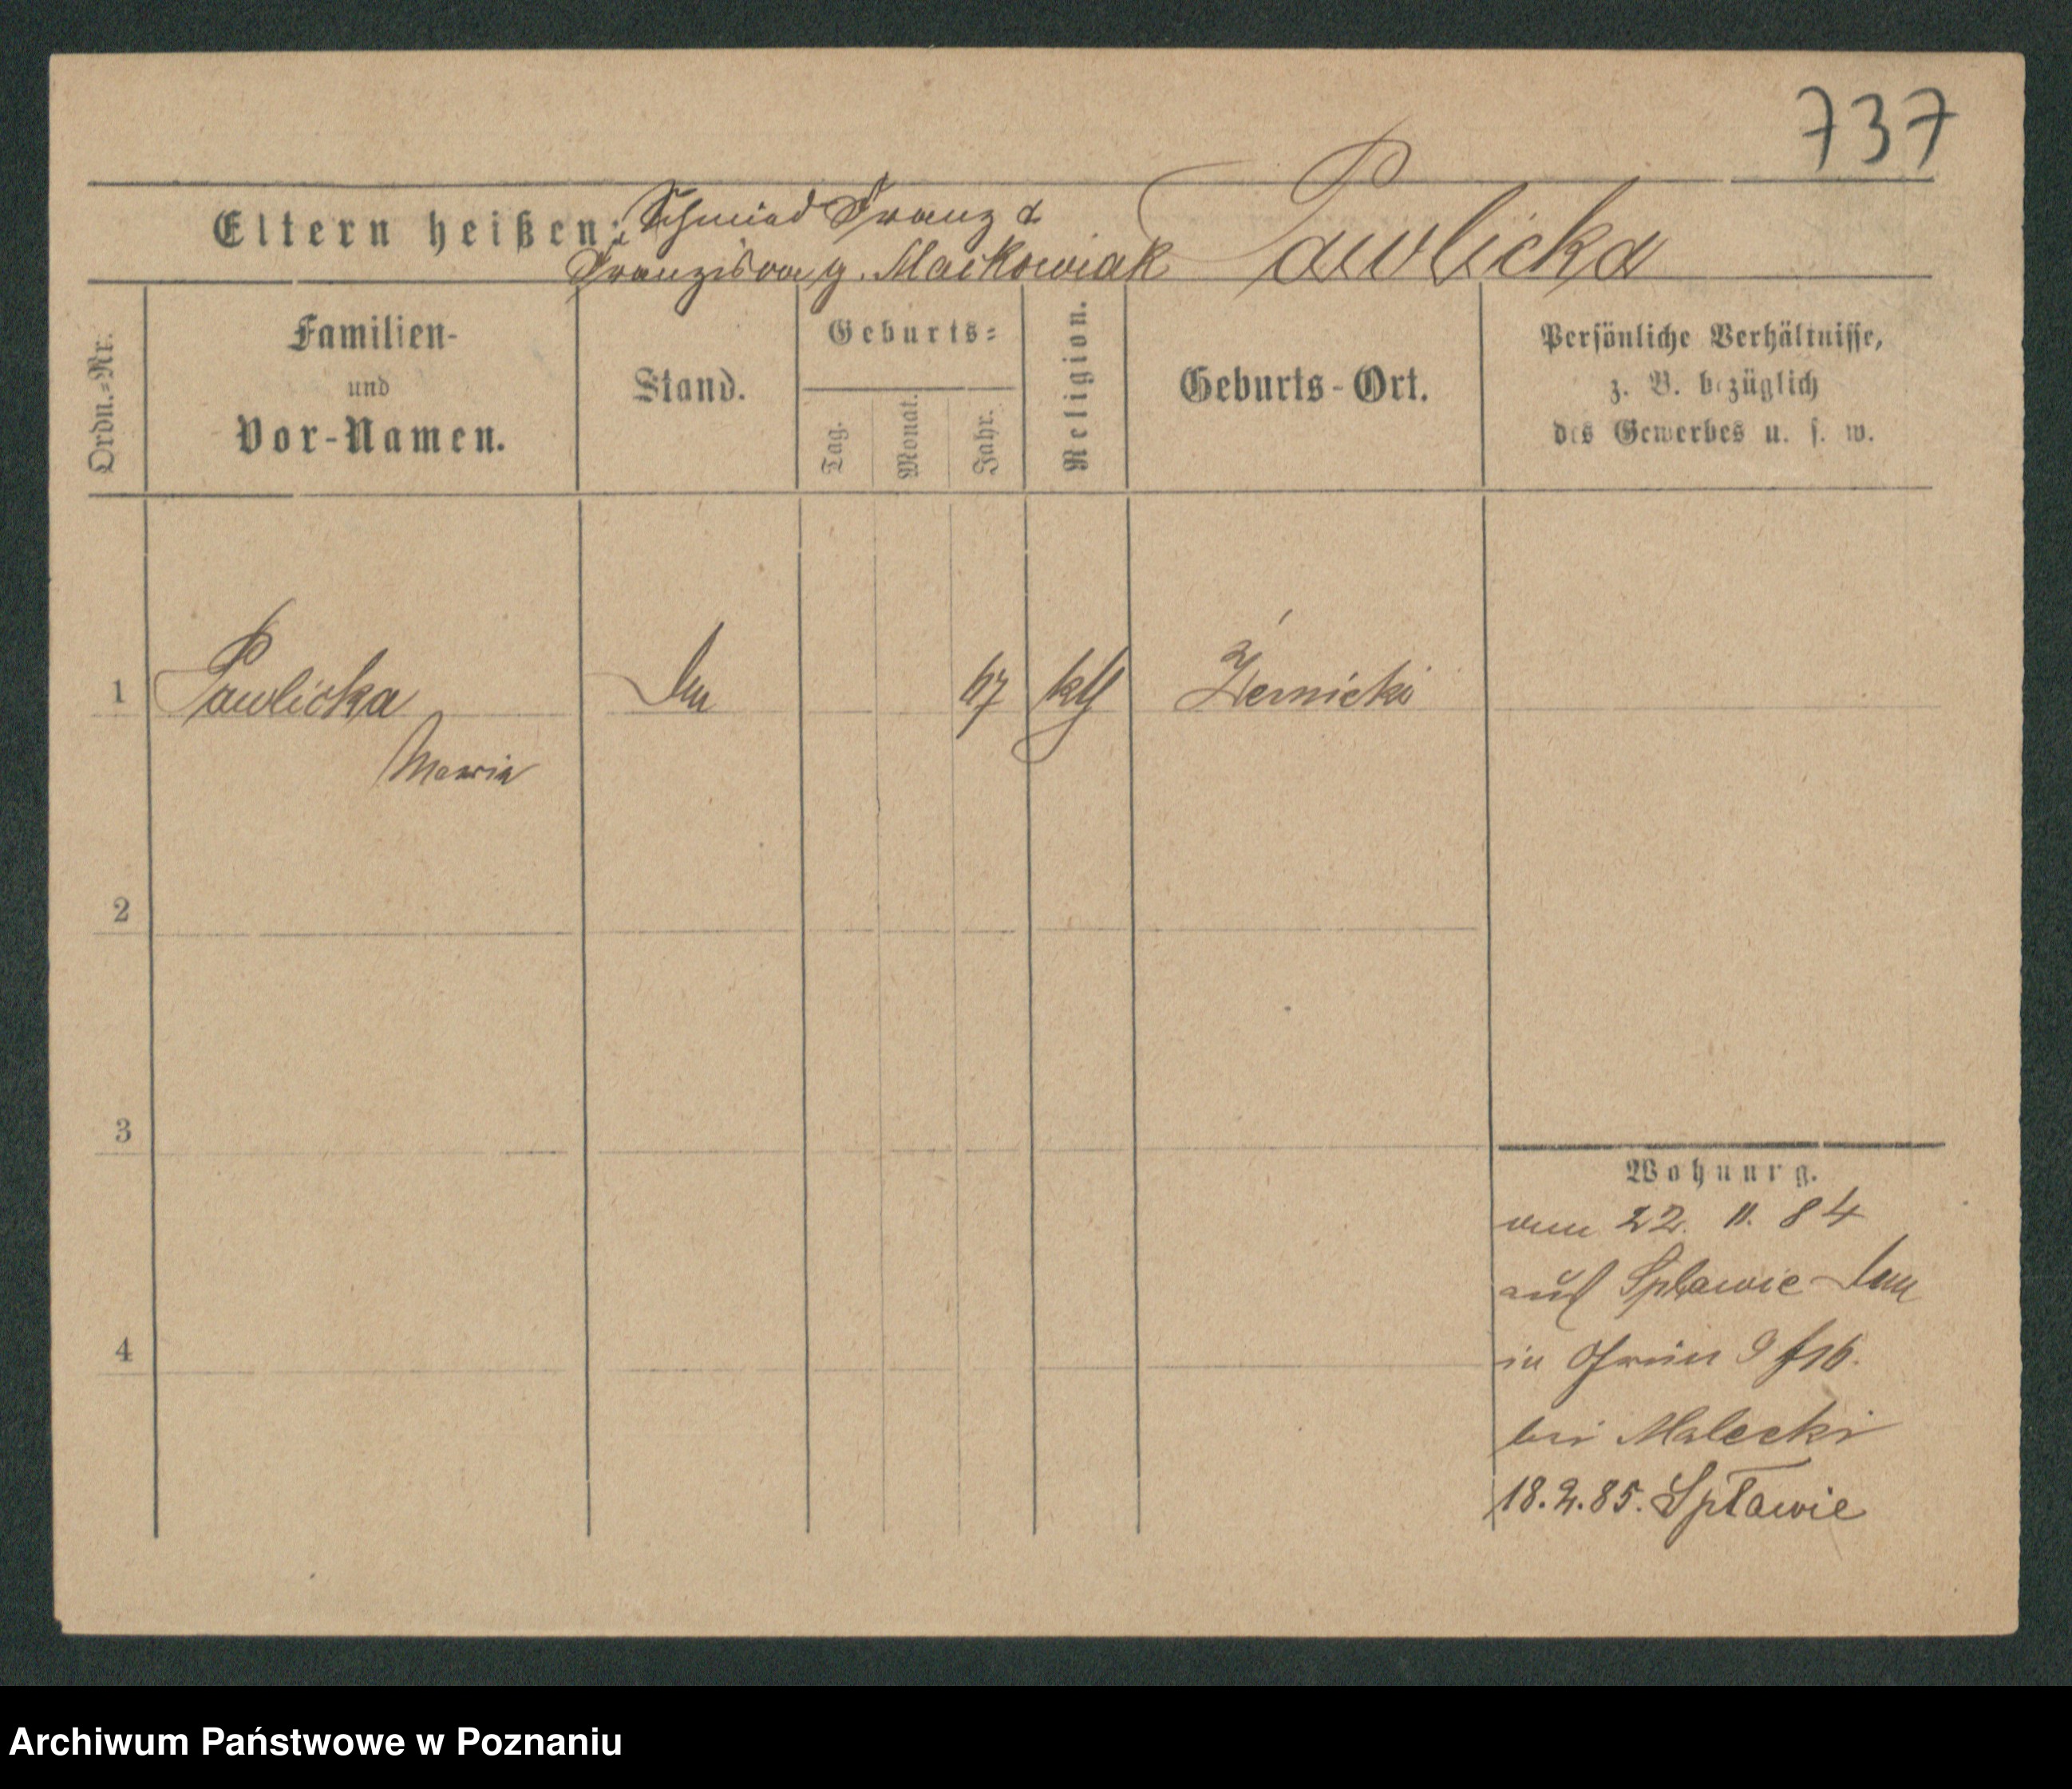 737
Eltern heißen: Schmied Franz &
Franziska g. Maćkowiak Pawlicka
Ordn.-Nr.
Familien-
und
Vor-Namen.
Stand.
Geburts-
Tag.
Monat.
Jahr.
Religion.
Geburts-Ort.
Persönliche Verhältnisse,
z. B. bezüglich
des Gewerbes u. s. w.
1 Pawlicka 67 kth Żerniki
Maria
2
3
4
Wohnung.
vom 22. 11. 84
auf Spławie
in
bei Malecki
18. 2. 85. Spławie
Archiwum Państwowe w Poznaniu